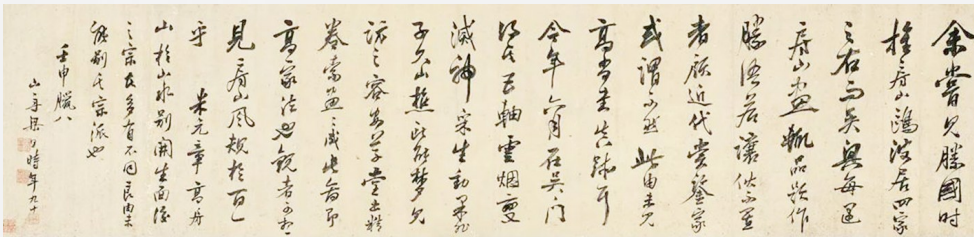 余嘗見勝國時
推房山鷗波居四家
之右而吳興每遇
房山畫輒品題作
勝語若讓伏不置
者顧近代賞鑒家
或謂不然此由未見
高尚書真跡耳
今年六月在吳門
得其巨軸雲烟變
滅神采生動果非
子久山樵所能夢見
訪之容安草堂出精
卷索畫畫成此卷即
高家法也觀者可想
見房山風規於百一
乎 米元章高房
山於山水別開生面後
之宗者多有不同良由未
能別其宗派也
壬申臘八
山舟梁 時年九十